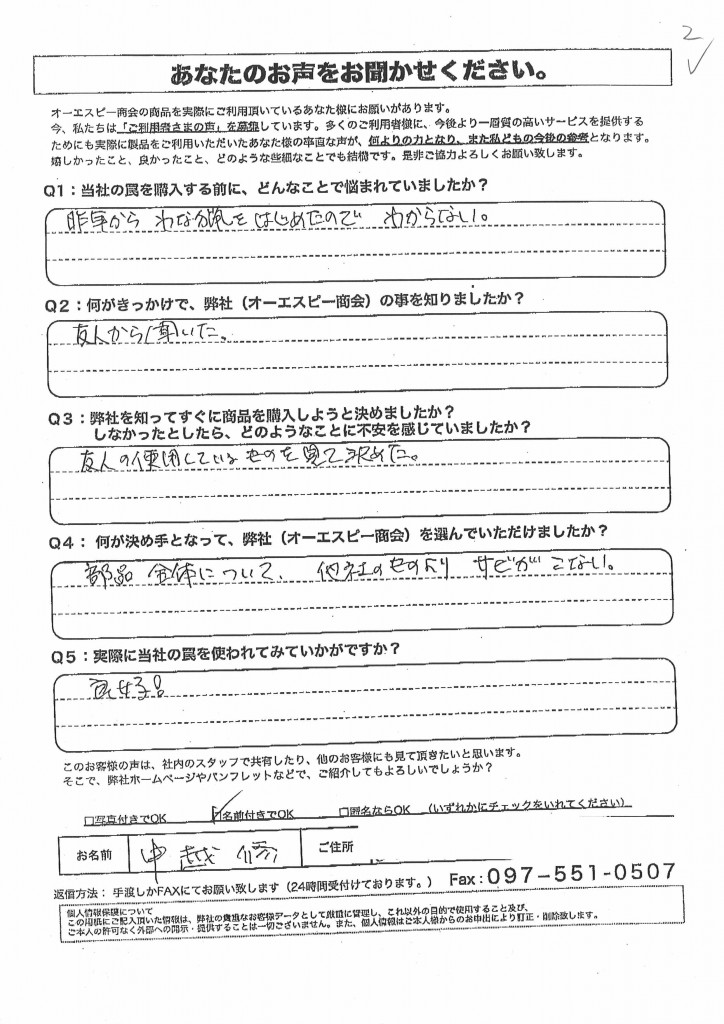 2
あなたのお声をお聞かせください。
オーエスピー商会の商品を実際にご利用頂いているあなた様にお願いがあります。
今、私たちは「ご利用者さまの声」を募集しています。多くのご利用者様に、今後より一層質の高いサービスを提供する
ためにも実際に製品をご利用いただいたあなた様の率直な声が、何よりの力となり、また私どもの今後の参考となります。
嬉しかったこと、良かったこと、どのような些細なことでも結構です。是非ご協力よろしくお願い致します。
Q1：当社の罠を購入する前に、どんなことで悩まれていましたか？
昨年から わな猟をはじめたので わからない。
Q2：何がきっかけで、弊社（オーエスピー商会）の事を知りましたか？
友人から聞いた。
Q3：弊社を知ってすぐに商品を購入しようと決めましたか？
しなかったとしたら、どのようなことに不安を感じていましたか？
友人の使用しているものを見て決めた。
Q4： 何が決め手となって、弊社（オーエスピー商会）を選んでいただけましたか？
部品 全体について、 他社のものより サビが こない。
Q5：実際に当社の罠を使われてみていかがですか？
このお客様の声は、社内のスタッフで共有したり、他のお客様にも見て頂きたいと思います。
そこで、弊社ホームページやパンフレットなどで、ご紹介してもよろしいでしょうか？
□写真付きでOK ☑名前付きでOK □匿名ならOK （いずれかにチェックをいれてください）
お名前 中越 修 ご住所
返信方法： 手渡しかFAXにてお願い致します（24時間受付けております。） Fax：097-551-0507
個人情報保護について
この用紙にご記入頂いた情報は、弊社の貴重なお客様データとして厳重に管理し、これ以外の目的で使用すること及び、
ご本人の許可なく外部への開示・提供することは一切ございません。また、個人情報はご本人様からのお申出により訂正・削除致します。